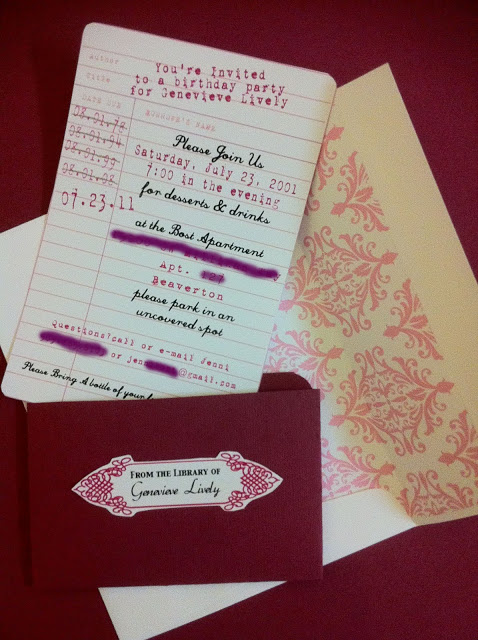 Author
Title
You're Invited
to a birthday party
for Genevieve Lively
DATE DUE
BORROWER'S NAME
08.01.78
08.01.94
08.01.99
08.01.08
07.23.11
Please Join Us
Saturday, July 23, 2001
7:00 in the evening
for desserts & drinks
at the Bost Apartment
Apt.
Beaverton
please park in an
uncovered spot
Questions? call or e-mail Jenni
or jen @gmail.com
Please Bring A bottle of your
FROM THE LIBRARY OF
Genevieve Lively